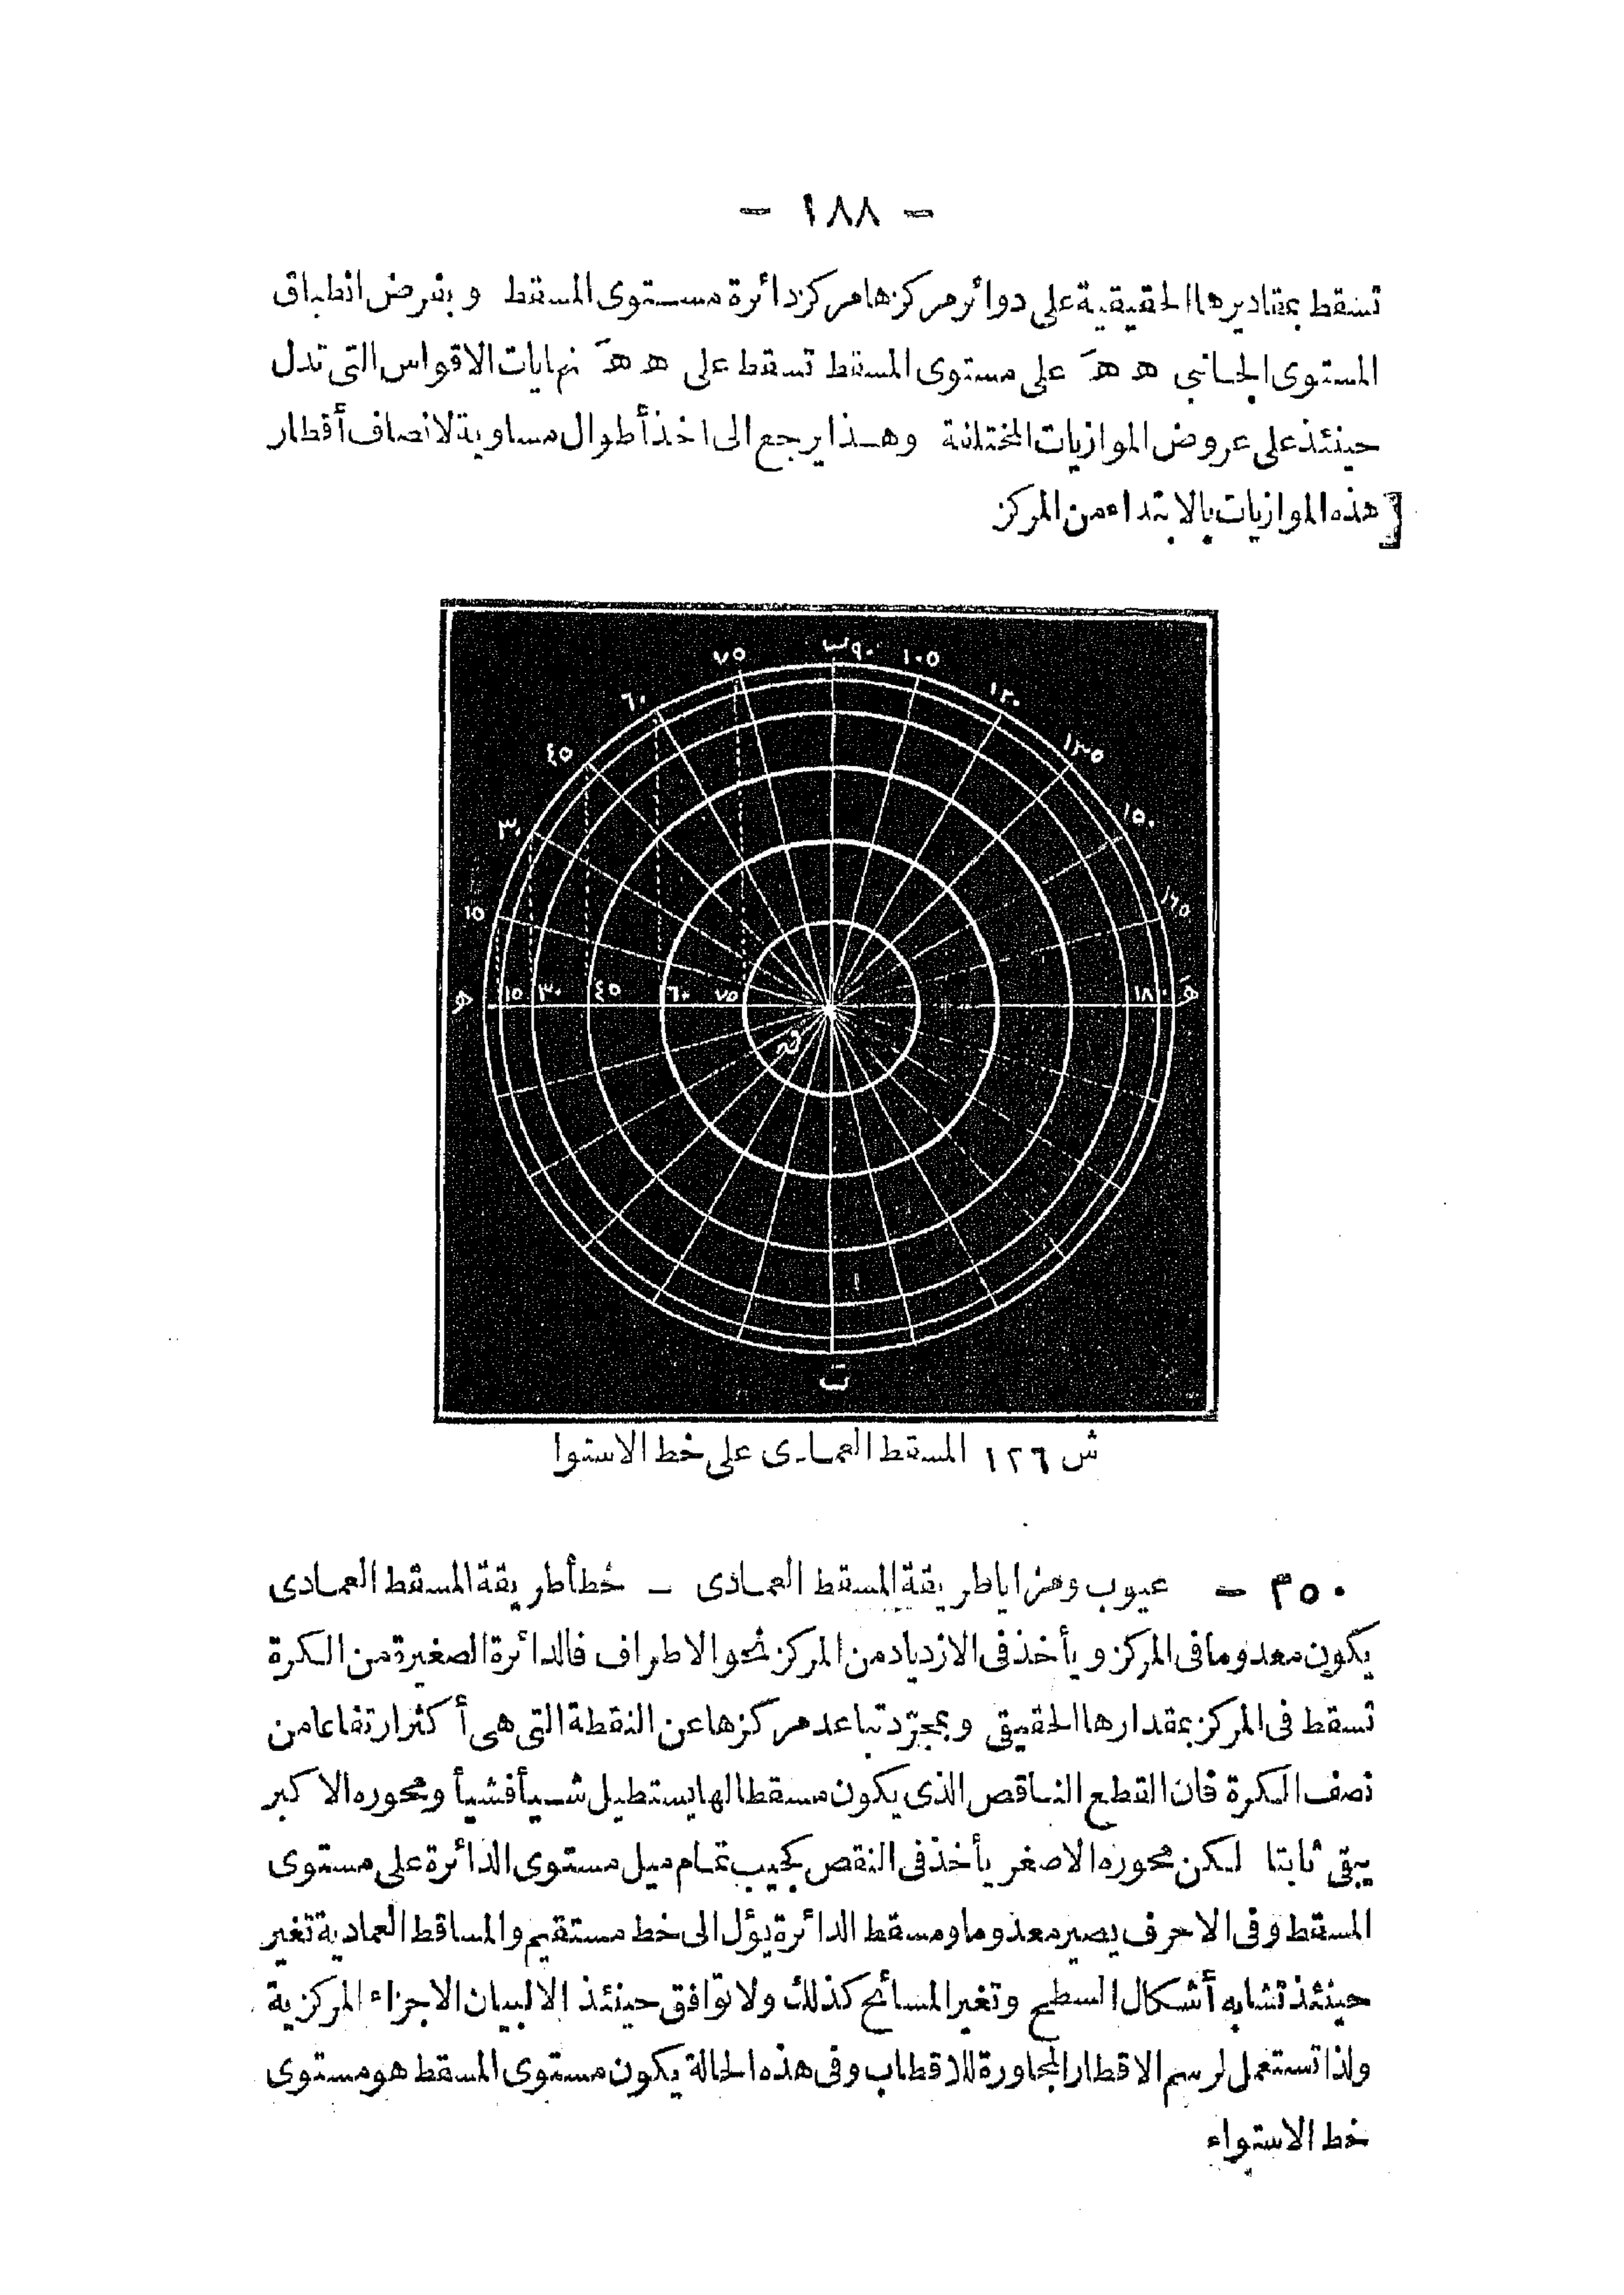 — ١٨٨ —
تسقط بمقاديرها الحقيقية على دوائر مركزها مركز دائرة مستوى المسقط وبفرض انطباق
المستوى الجانبي ه هَ على مستوى المسقط تسقط على ه هَ نهايات الاقواس التى تدل
حينئذ على عروض الموازيات المختلفة وهذا يرجع الى اخذ أطوال مساوية لانصاف أقطار
[هذه الموازيات بالابتداء من المركز
٧٥ ٩٠ ب ١٠٥
٦٠ ١٢٠
٤٥ ١٣٥
٣٠ ١٥٠
١٥ ١٦٥
ه ١٥ ٣٠ ٤٥ ٦٠ ٧٥ ١٨٠ هَ
ت
ش ١٢٦ المسقط العمادى على خط الاستوا
٣٥٠ — عيوب ومزايا طريقة المسقط العمادى — خطأ طريقة المسقط العمادى
يكون معدوما فى المركز ويأخذ فى الازدياد من المركز نحو الاطراف فالدائرة الصغيرة من الكرة
تسقط فى المركز بمقدارها الحقيقى وبمجرّد تباعد مركزها عن النقطة التى هى أكثر ارتفاعا من
نصف الكرة فان القطع الناقص الذى يكون مسقطا لها يستطيل شيأ فشيأ ومحوره الاكبر
يبقى ثابتا لكن محوره الاصغر يأخذ فى النقص كجيب تمام ميل مستوى الدائرة على مستوى
المسقط وفى الاحرف يصير معدوما ومسقط الدائرة يؤل الى خط مستقيم والمساقط العمادية تغير
حينئذ تشابه أشكال السطح وتغير المسائح كذلك ولا توافق حينئذ الا لبيان الاجزاء المركزية
ولذا تستعمل لرسم الاقطار المجاورة للاقطاب وفى هذه الحالة يكون مستوى المسقط هو مستوى
خط الاستواء